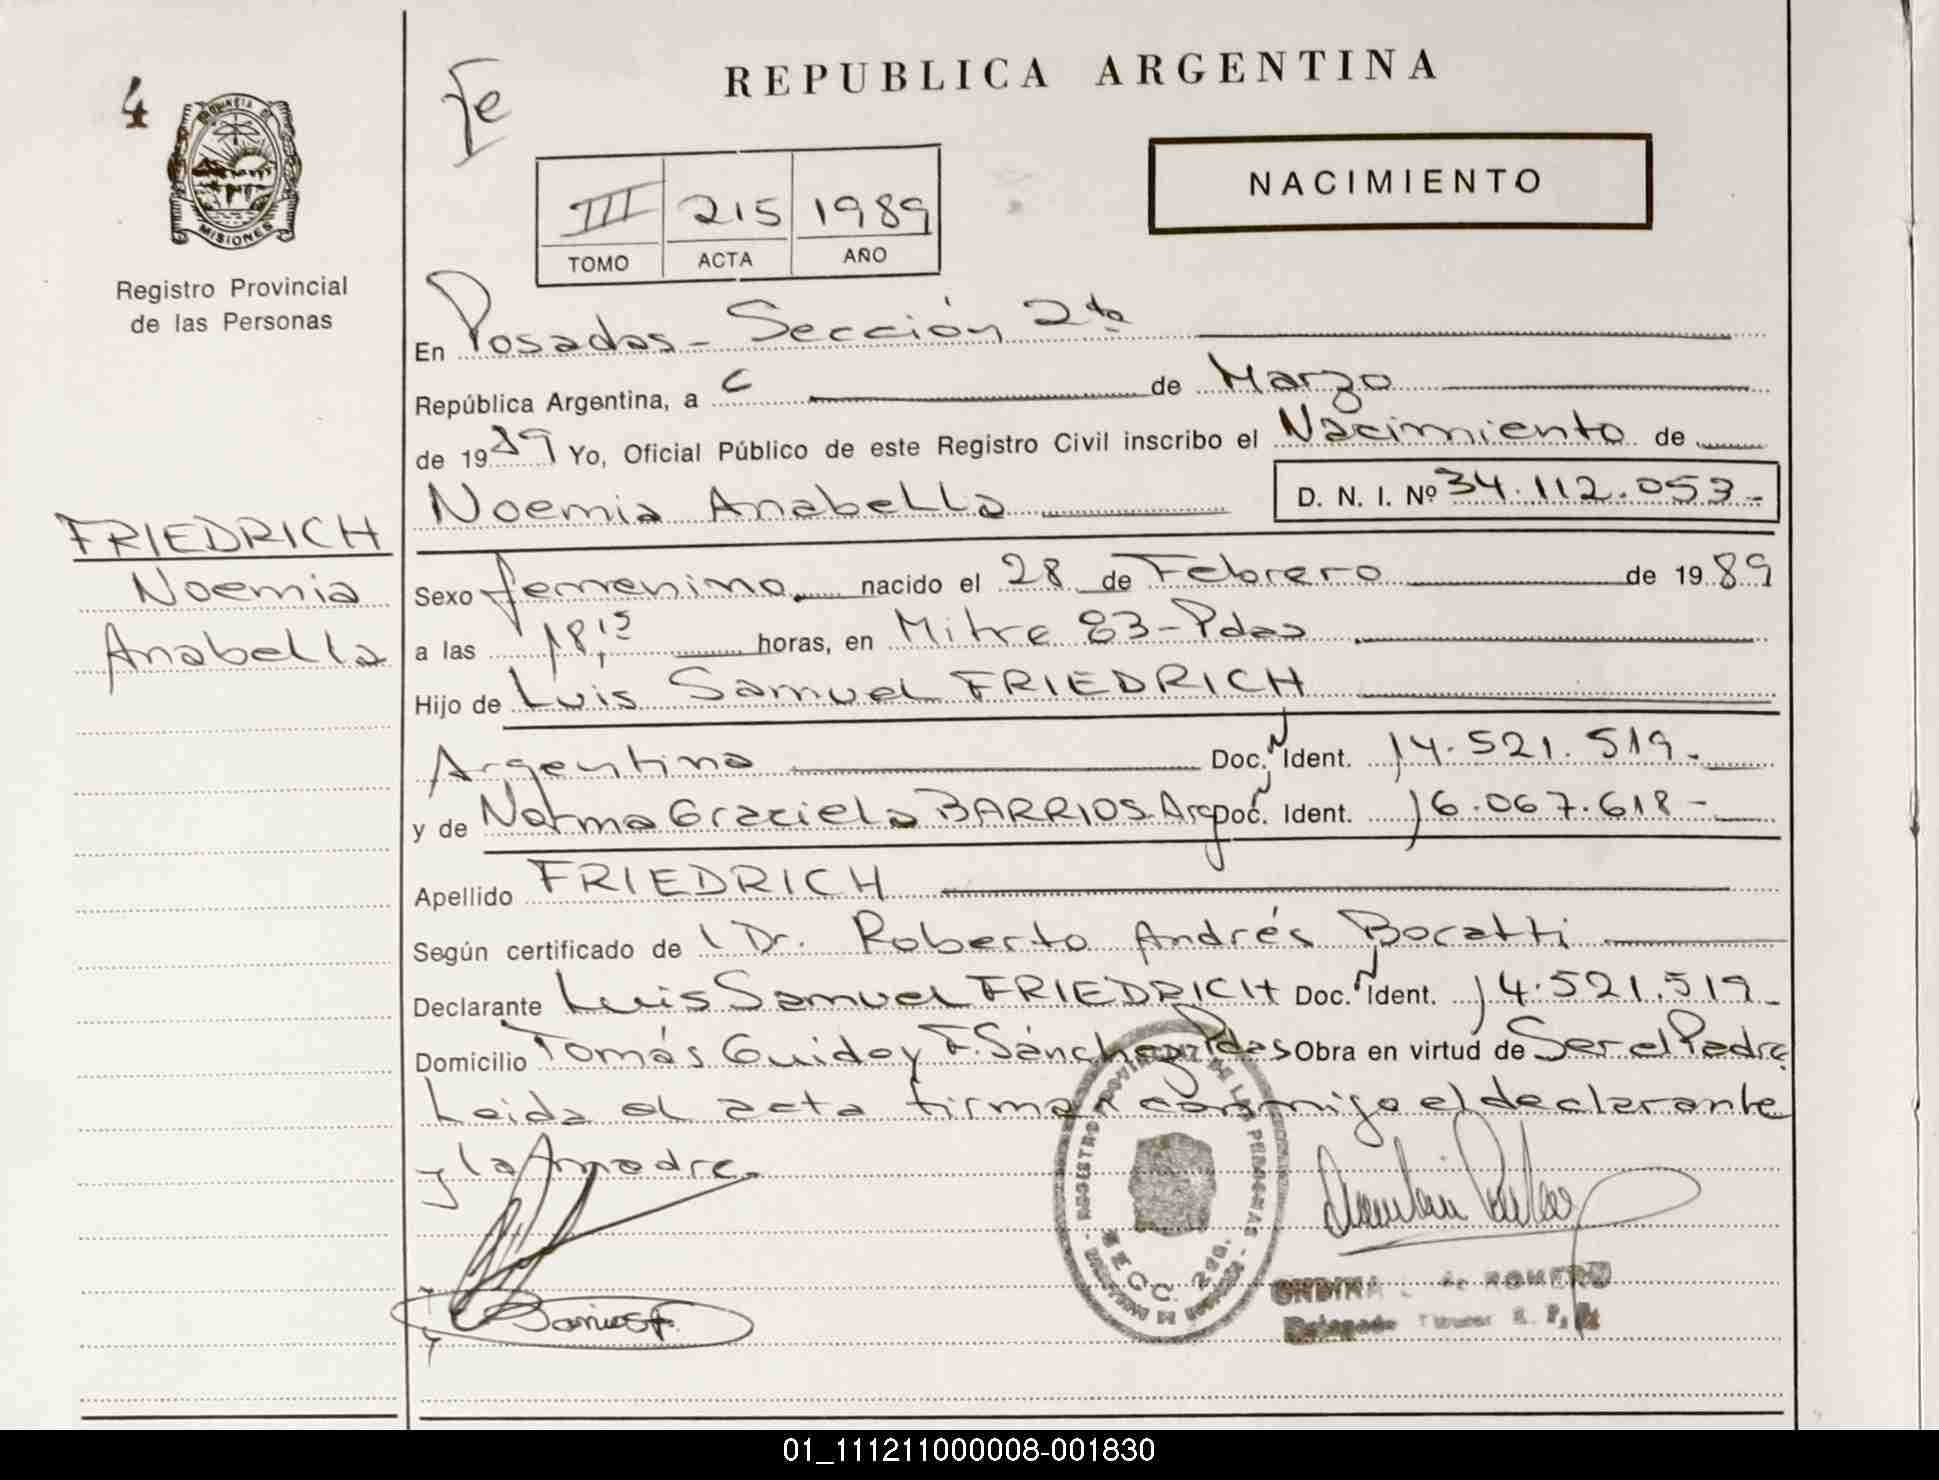 4
PROVINCIA DE
MISIONES
Registro Provincial
de las Personas
FRIEDRICH
Noemia
Anabella
Fe
REPUBLICA ARGENTINA
NACIMIENTO
III 215 1989
TOMO ACTA AÑO
En Posadas - Sección 2da
República Argentina, a de Marzo
de 1989 Yo, Oficial Público de este Registro Civil inscribo el Nacimiento de
Noemia Anabella D. N. I. Nº 34.112.053-
Sexo femenino nacido el 28 de Febrero de 1989
a las 18,15 horas, en Mitre 83-Pdas
Hijo de Luis Samuel FRIEDRICH
Argentina Doc. Ident. 14.521.519-
y de Norma Graciela BARRIOS. Arg Doc. Ident. 16.067.618-
Apellido FRIEDRICH
Según certificado de Dr. Roberto Andrés Bocatti
Declarante Luis Samuel FRIEDRICH Doc. Ident. 14.521.519-
Domicilio Tomás Guido y F. Sánchez Pdas Obra en virtud de Ser el Padre
Leida el acta firman conmigo el declarante
y la madre.
REGISTRO PROVINCIAL DE LAS PERSONAS
SECC. 2da.
Barrios
de ROMERO
Delegado Titular R. P. P.
01_111211000008-001830